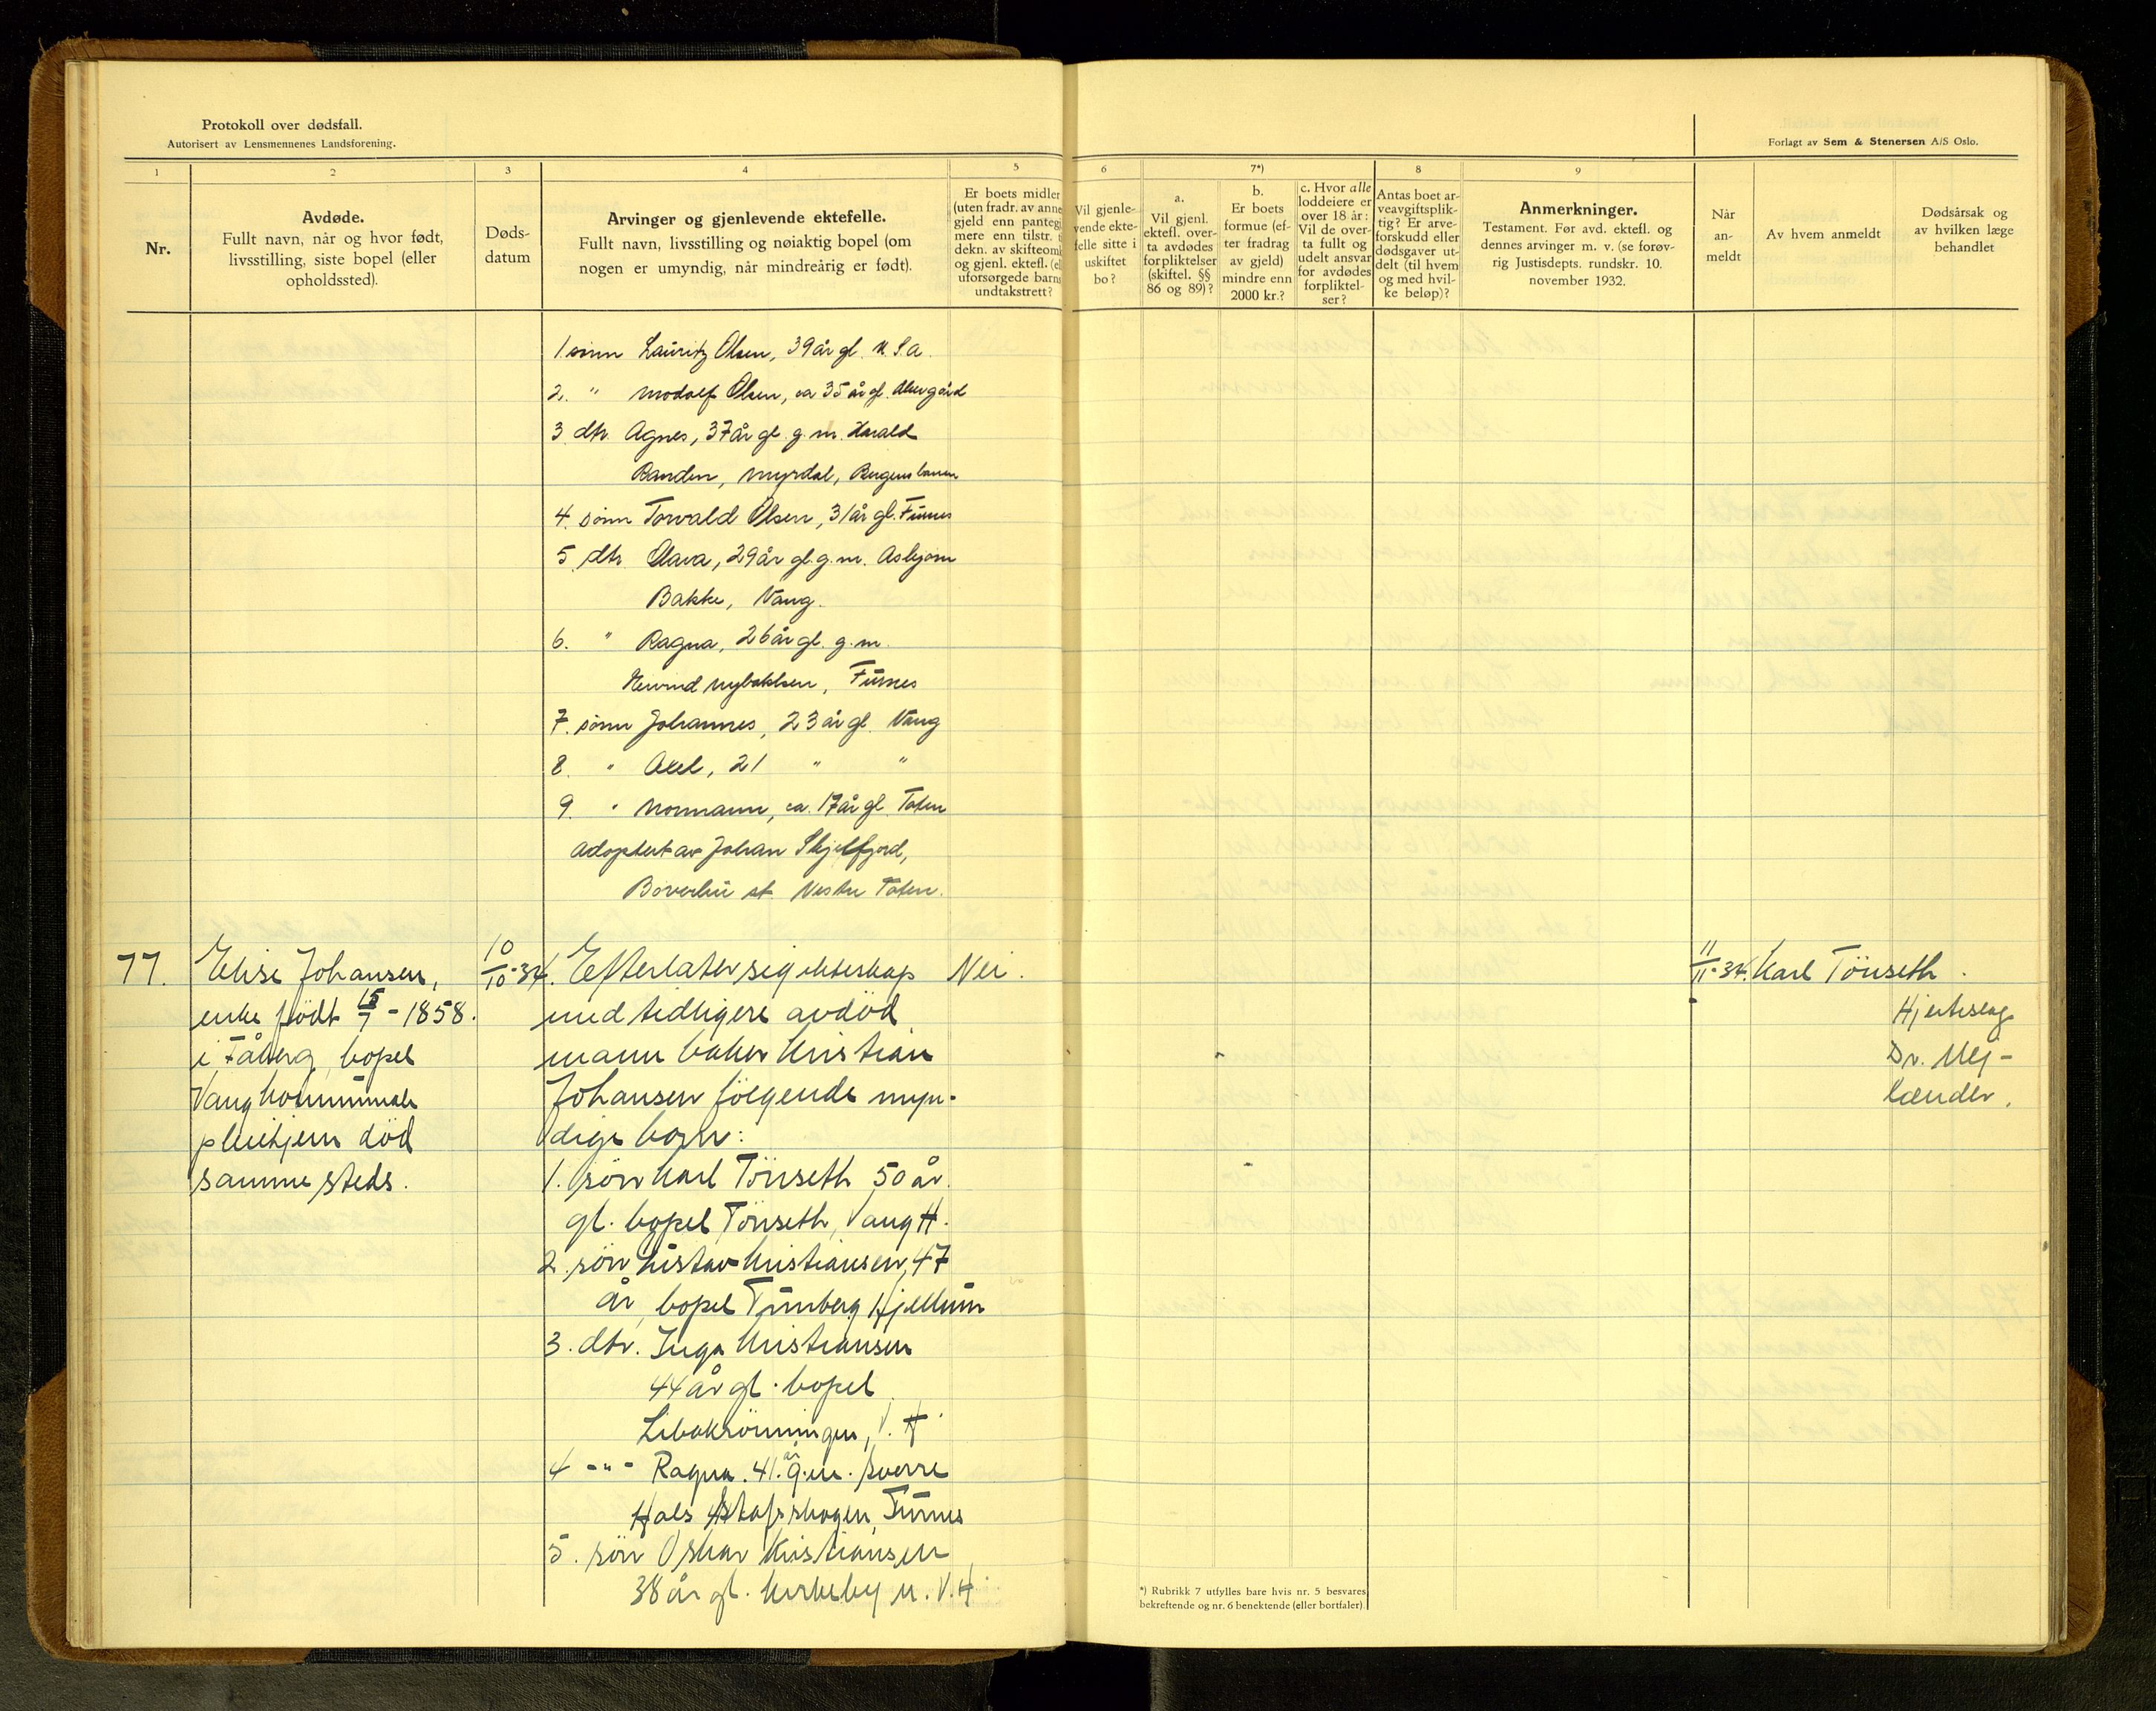 Protokoll over dødsfall.
Autorisert av Lensmennenes Landsforening.
Forlagt av Sem & Stenersen A/S Oslo.
1
2
3
4
5
6
7*)
8
9
Nr.
Avdøde.
Fullt navn, når og hvor født,
livsstilling, siste bopel (eller
opholdssted).
Døds-
datum
Arvinger og gjenlevende ektefelle.
Fullt navn, livsstilling og nøiaktig bopel (om
nogen er umyndig, når mindreårig er født).
Er boets midler
(uten fradr. av anne
gjeld enn pantegj
mere enn tilstr. t
dekn. av skifteomk
og gjenl. ektefl. (el
uforsørgede barns
undtakstrett?
Vil gjenle-
vende ekte-
felle sitte i
uskiftet
bo?
a.
Vil gjenl.
ektefl. over-
ta avdødes
forpliktelser
(skiftel. §§
86 og 89)?
b.
Er boets
formue (ef-
ter fradrag
av gjeld)
mindre enn
2000 kr.?
c. Hvor alle
loddeiere er
over 18 år:
Vil de over-
ta fullt og
udelt ansvar
for avdødes
forpliktel-
ser?
Antas boet ar-
veavgiftsplik-
tig? Er arve-
forskudd eller
dødsgaver ut-
delt (til hvem
og med hvil-
ke beløp)?
Anmerkninger.
Testament. Før avd. ektefl. og
dennes arvinger m. v. (se forøv-
rig Justisdepts. rundskr. 10.
november 1932.
Når
an-
meldt
Av hvem anmeldt
Dødsårsak og
av hvilken læge
behandlet
1 sönn Lauritz Olsen, 39 år gl. U.S.a.
2. " Modolf Olsen, ca 35 år gl.
3 dtr. Agnes, 37 år gl. g. m. Harald
Randen, Myrdal, Bergensbanen
4. sönn Torvald Olsen, 31 år gl. Furnes
5 dtr Olava, 29 år gl. g. m. Asbjørn
Bakke, Vang.
6. " Ragna, 26 år gl. g. m.
Eivind Nybakken, Furnes
7. sönn Johannes, 23 år gl. Vang
8. " Axel, 21 " "
9. " Normann, ca. 17 år gl. Toten
adoptert av Johan Skjelfjord,
Böverbru st. Vestre Toten.
77.
Elise Johansen,
enke født 15/7 - 1858.
i Fåberg, bopel
Vang kommunale
pleiehjem död
samme steds.
10/10-34.
Efterlater sig ekteskap
med tidligere avdöd
mann baker Kristian
Johansen fölgende myn-
dige barn:
1. sön Karl Tönseth 50 år.
gl. bopel Tönseth, Vang H.
2. sön Gustav Kristiansen, 47
år, bopel Tunberg Hjellum
3. dtr. Inga Kristiansen
44 år gl. bopel
Libakrönningen, V. H.
4 -"- Ragna. 41. år g.m. Sverre
Hals Furnes
5. sön Oskar Kristiansen
38 år gl. Kirkeby u. V.H.
Nei.
11/11-34.
Karl Tönseth.
Hjerteslag
Dr. Mej-
lænder.
*) Rubrikk 7 utfylles bare hvis nr. 5 besvares
bekreftende og nr. 6 benektende (eller bortfaler).